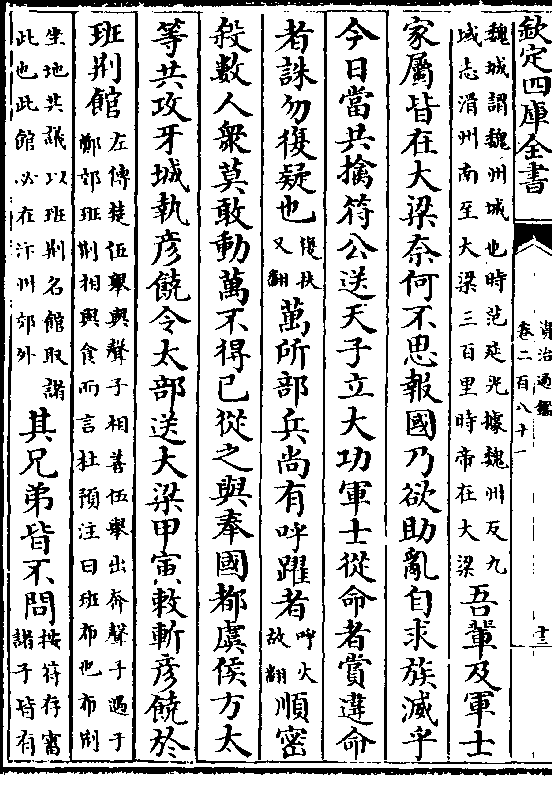 欽定四庫全書
資治通鑑
卷二百八十一
十三
魏城謂魏州城也時范延光據魏州反九
域志滑州南至大梁三百里時帝在大梁
吾輩及軍士
家屬皆在大梁奈何不思報國乃欲助亂自求族滅乎
今日當共擒符公送天子立大功軍士從命者賞違命
者誅勿復疑也
復扶
又翻
萬所部兵尚有呼躍者
呼火
故翻
順密
殺數人衆莫敢動萬不得已從之與奉國都虞侯方太
等共攻牙城執彦饒令太部送大梁甲寅敕斬彦饒於
班荆館
左傳楚伍舉與聲子相善伍舉出奔聲子遇于
鄭郊班荆相與食而言杜預注曰班布也布荆
坐地共議以班荆名館取諸
此也此館必在汴州郊外
其兄弟皆不問
按符存審
諸子時有